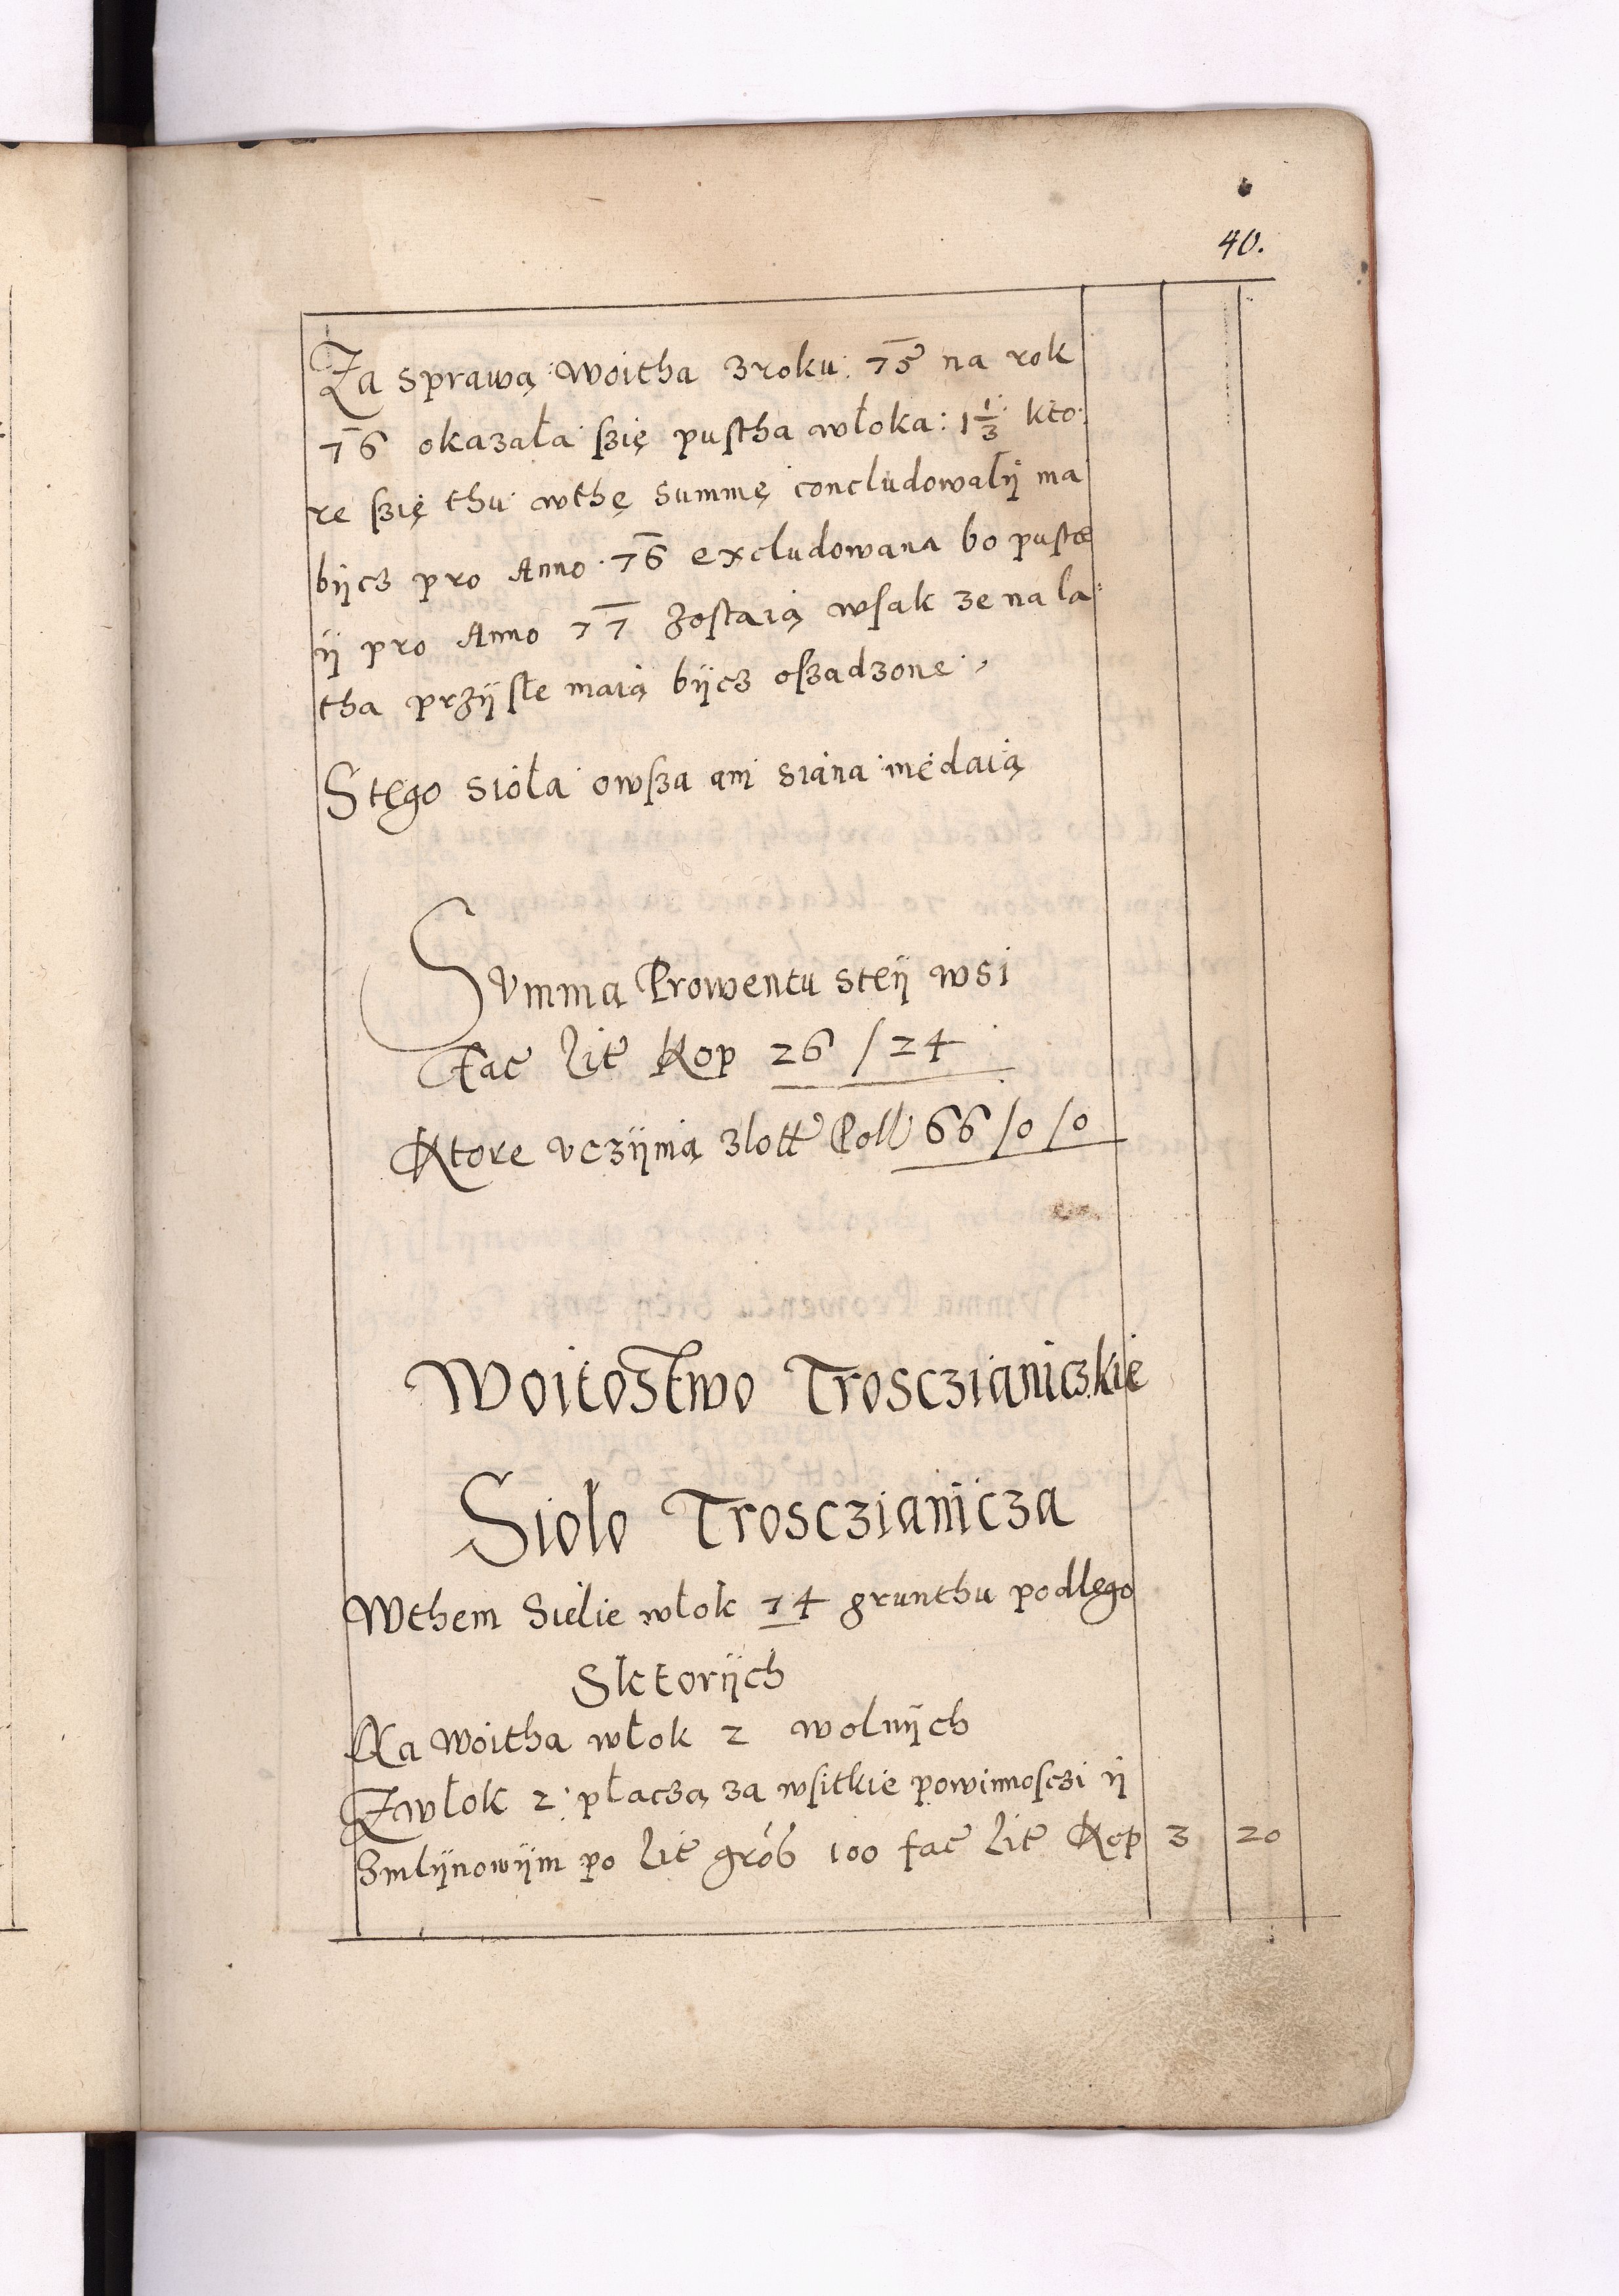 40.
Za sprawą woitha z roku 75 na rok
76 okazała szię pustha włoka: 1 1/3 kto:
re szię thu wthę summę concludowalÿ ma
bÿcz pro Anno 76 excludowana bo puste
ÿ pro Anno 77 zostaią wsak ze na la:
tha przÿsłe maią bÿcz oszadzone
Stego sioła owsza ani siana niedaią
Summa Prowentu steÿ wsi
fac Lit Kop 26 / 24
Ktore vczÿnią zlott Poll 66 / 0 / 0
Woitostwo Trosczianiczkie
Sioło Trosczianicza
Wthem Sielie włok 74 grunthu podlego
Sktorÿch
Na Woitha włok 2 wolnÿch
Zwłok 2 płaczą za wsitkie powinnosczi ÿ
Zmlÿnowÿm po Lit gro 100 fac Lit Kop 3 20